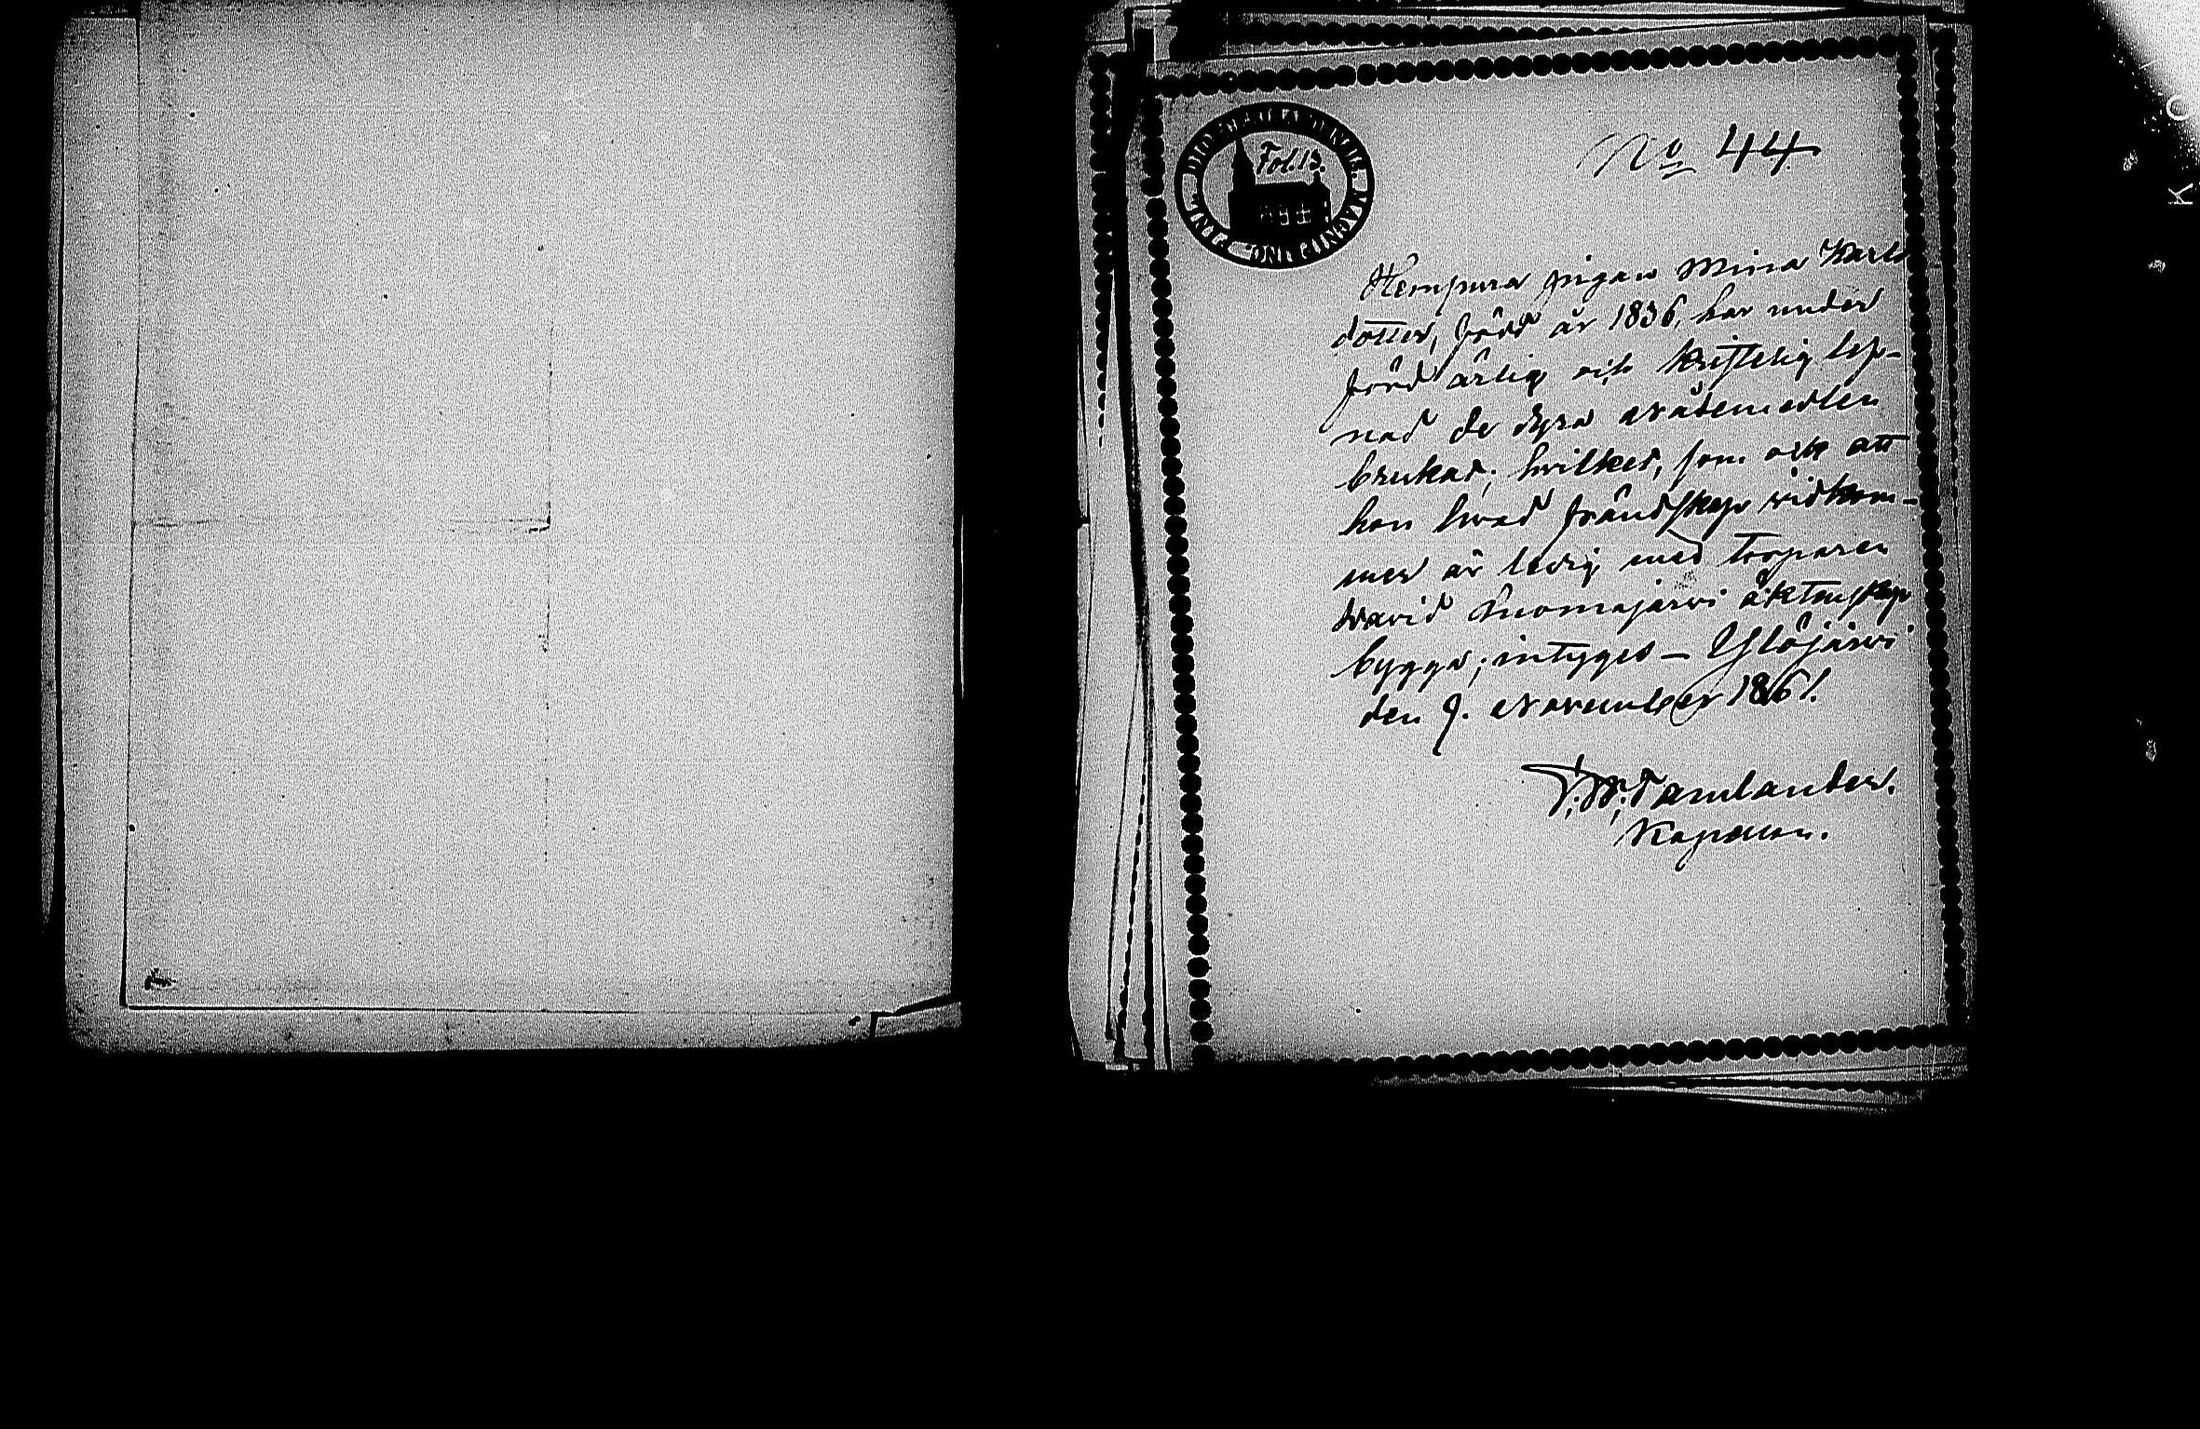 Fol. 13.
No 44
Hemfara pigan Mina Karls
dotter, född år 1836, har under
förd ärlig och kristelig lef-
nad de dyra nådemedlen
brukat; hvilket, som ock att
hon hvad frändskap vidkom-
mer är ledig med Torparen
David Luomajärvi äktenskap
bygga; intygas – Ylöjärvi
den 9. November 1861.
Tamlander.
Kapellan.